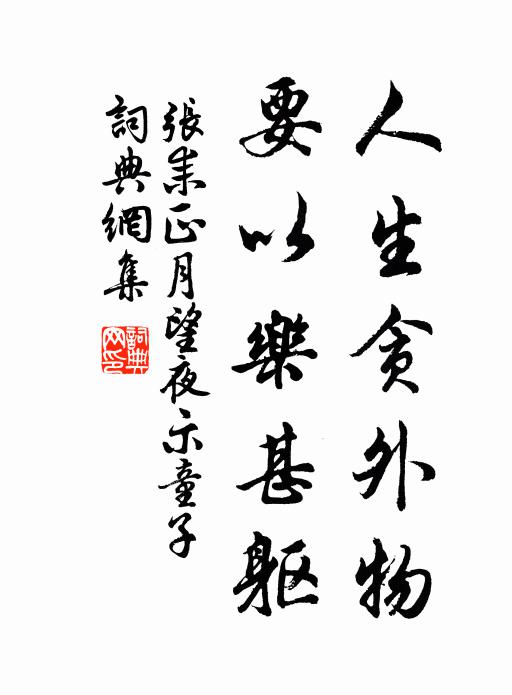 人生貪外物
要以樂甚軀
張耒正月望夜示童子
詞典網集
詞典网印